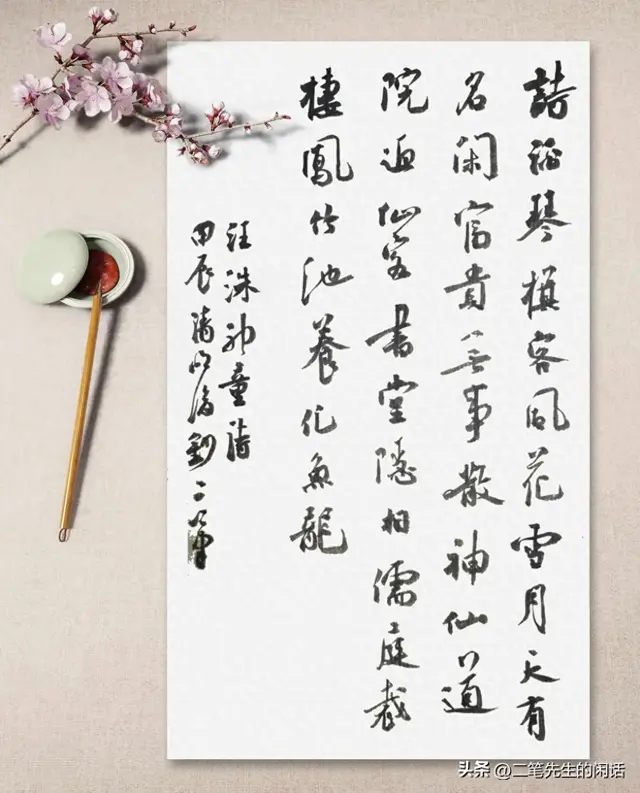 詩酒琴棋客風花雪月天有
名闲富貴無事散神仙道
院迎仙客書堂隱相儒庭栽
棲鳳竹池養化魚龍
汪洙神童詩
甲辰清明後劉二筆
头条 @二笔先生的闲话